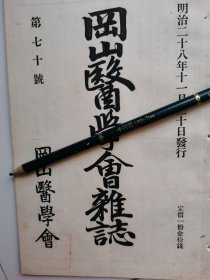 明治二十八年十一月三十日發行
岡山醫學會雜誌
第七十號
岡山醫學會
定價一冊金拾錢